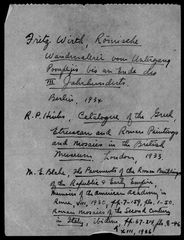 Fritz Wirth, Römische
Wandmalerei vom Untergang
Pompejis bis ans Ende des
III Jahrhunderts
Berlin, 1934
R.P. Hinks, Catalogue of the Greek
Etruscan and Roman Paintings
and Mosaics in the British
Museum, London, 1933.
M.E. Blake, The Pavements of the Roman Buildings
of the Republic & Early Empire
Memoirs of the American Academy in
Rome, VIII, 1930, pp. 7-159, pls. 1-50.
Roman Mosaics of the Second Century
in Italy, Ibidem, pp. 67-214, pls. 8-46
XIII, 1936